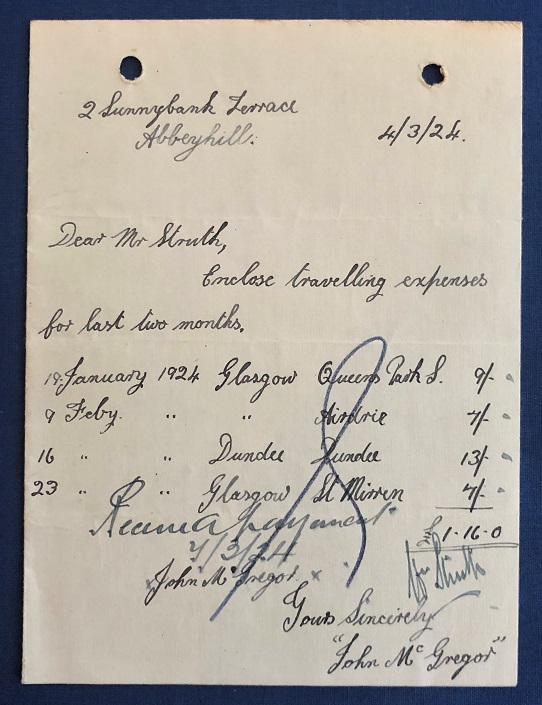 2 Sunnybank Terrace
Abbeyhill.
4/3/24.
Dear Mr Struth,
Enclose travelling expenses
for last two months.
19. January 1924 Glasgow Queens Park S. 9/-
9 Feby. " " " Airdrie 7/-
16 " " Dundee Dundee 13/-
23 " " Glasgow St Mirren 7/-
£1-16-0
Received payment
7/3/24
Wm Struth
John McGregor
Yours Sincerely
"John Mc Gregor"